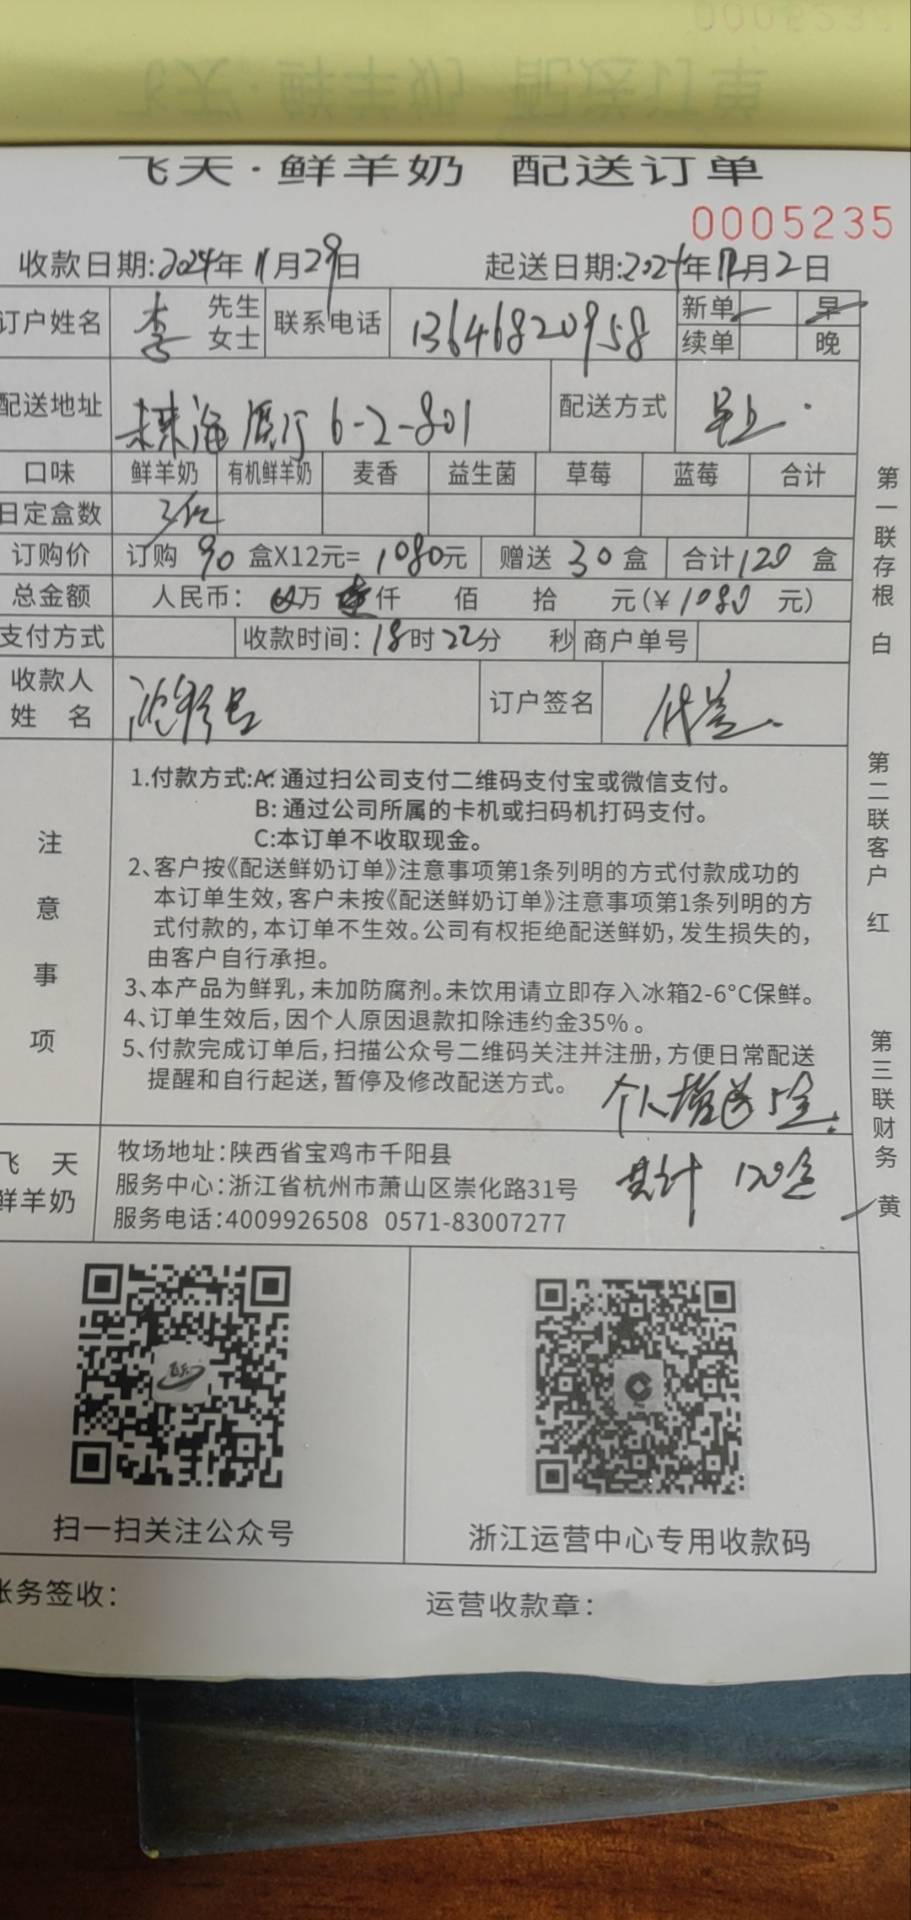 飞天·鲜羊奶 配送订单
0005235
收款日期:2024年11月29日 起送日期:2024年12月2日
订户姓名 李 先生 女士 联系电话 13646820958 新单 早
续单 晚
配送地址 6-2-801 配送方式 早上
口味 鲜羊奶 有机鲜羊奶 麦香 益生菌 草莓 蓝莓 合计
日定盒数
订购价 订购 90 盒X12元= 1080元 赠送 30 盒 合计 120 盒
总金额 人民币: 万 仟 佰 拾 元(¥1080 元)
支付方式 收款时间: 18时22分 秒 商户单号
收款人
姓 名 订户签名 代签
注意事项
1.付款方式:A: 通过扫公司支付二维码支付宝或微信支付。
B: 通过公司所属的卡机或扫码机打码支付。
C:本订单不收取现金。
2、客户按《配送鲜奶订单》注意事项第1条列明的方式付款成功的
本订单生效,客户未按《配送鲜奶订单》注意事项第1条列明的方
式付款的,本订单不生效。公司有权拒绝配送鲜奶,发生损失的,
由客户自行承担。
3、本产品为鲜乳,未加防腐剂。未饮用请立即存入冰箱2-6°C保鲜。
4、订单生效后,因个人原因退款扣除违约金35%。
5、付款完成订单后,扫描公众号二维码关注并注册,方便日常配送
提醒和自行起送,暂停及修改配送方式。
个人赠送
飞 天
鲜羊奶
牧场地址:陕西省宝鸡市千阳县
服务中心:浙江省杭州市萧山区崇化路31号
服务电话:4009926508 0571-83007277
共计 120盒
第一联存根 白
第二联客户 红
第三联财务 黄
扫一扫关注公众号 浙江运营中心专用收款码
账务签收: 运营收款章: